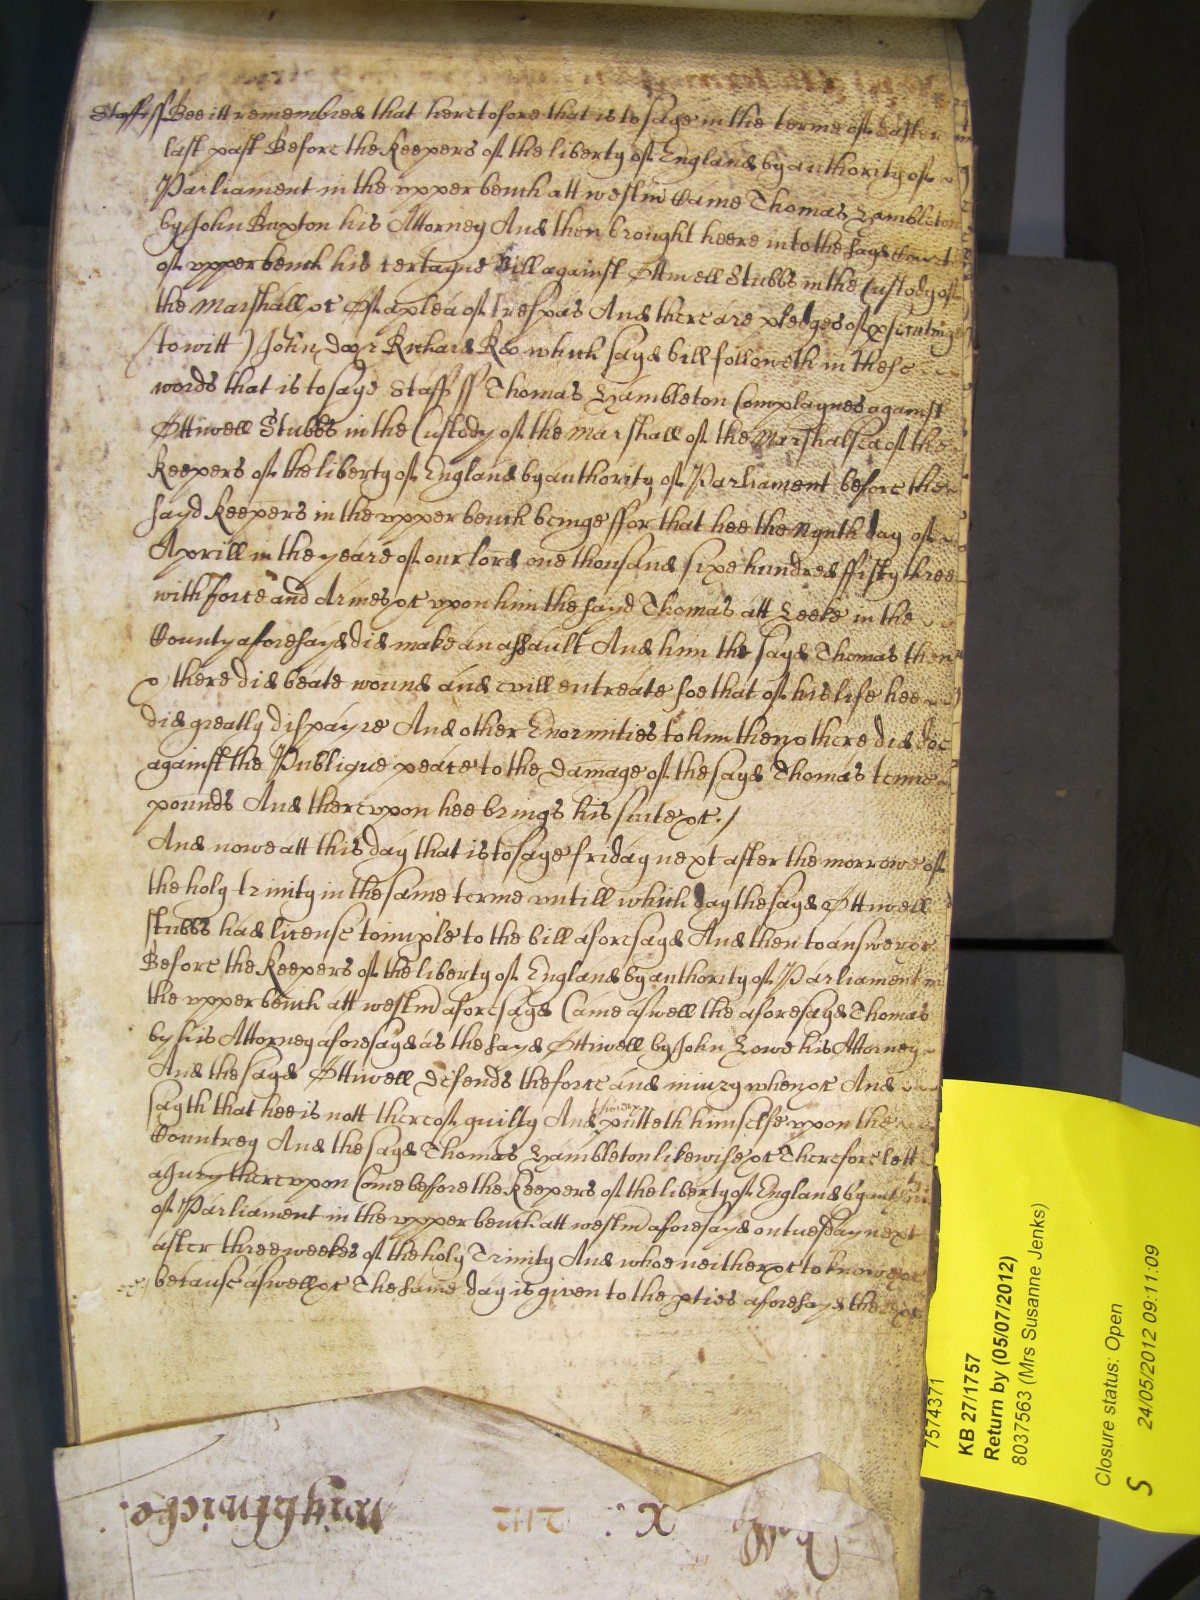 Staff ss Bee itt remembred that heretofore that is to saye in the terme of Easter
last past Before the Keepers of the liberty of England by authority of
Parliament in the vpper bench att westm̄ Came Thomas Hambleton
by John Buxton his Attorney And then brought heere into the sayd Court
of vpper bench his certayne Bill against Ottiwell Stubbs in the Custody of
the Marshall &c Of a plea of trespas And there are pledges of psecutinge
(to witt) John doo & Richard Roo which sayd bill followeth in these
words that is to saye Staff ss Thomas Hambleton Complaynes against
Ottiwell Stubbs in the Custody of the Marshall of the Marshalsea of the
Keepers of the liberty of England by authority of Parliament before the
sayd Keepers in the vpper bench beinge ffor that hee the Nynth day of
Aprill in the yeare of our lord one thousand sixe hundred ffifty three
with force and Armes &c vpon him the sayd Thomas att Leeke in the
County aforesayd did make an assault And him the sayd Thomas then
& there did beate wound and evill entreate soe that of his life hee
did greatly dispayre And other Enormities to him then & there did doe
against the Publique peace to the damage of the sayd Thomas tenne
pounds And therevpon hee brings his suite &c /
And nowe att this day that is to saye friday next after the morrowe of
the holy trinity in the same terme vntill which day the sayd Ottiwell
stubbs had license to imple to the bill aforesayd And then to answer &c
Before the Keepers of the liberty of England by authority of Parliament in
the vpper bench att westm̄ aforesayd Came aswell the aforesayd Thomas
by his Attorney aforesayd as the sayd Ottiwell by John Lowe his Attorney
And the sayd Ottiwell defends the force and iniury when &c And
sayth that hee is nott thereof guilty And thereof putteth himselfe vpon the
Countrey And the sayd Thomas Hambleton likewise &c Therefore lett
a Jury therevpon Come before the Keepers of the liberty of England by
of Parliament in the vpper bench att westm̄ aforesayd on tuesday next
after three weekes of the holy Trinity And whoe neither &c to knowe &c
because aswell &c The same day is given to the pties aforesayd there &c
Wightwicke.
7574371
KB 27/1757
Return by (05/07/2012)
8037563 (Mrs Susanne Jenks)
Closure status: Open
S 24/05/2012 09:11:09